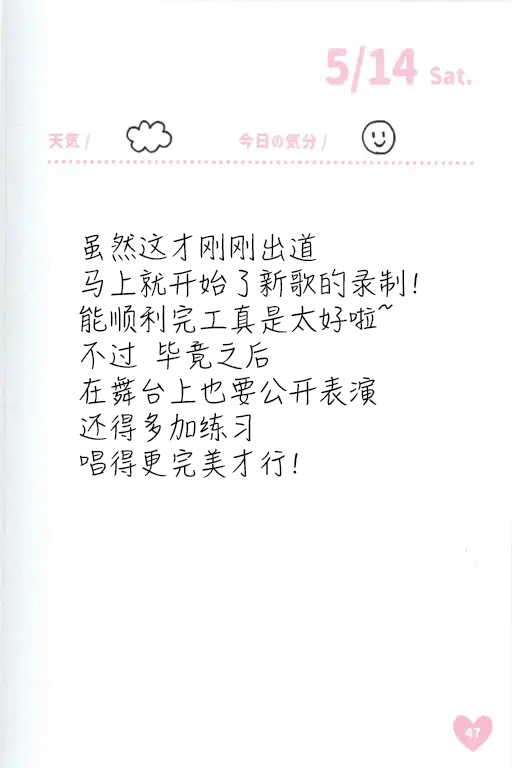 5/14 Sat.
天気 / 今日の気分 /
虽然这才刚刚出道
马上就开始了新歌的录制！
能顺利完工真是太好啦~
不过 毕竟之后
在舞台上也要公开表演
还得多加练习
唱得更完美才行！
47